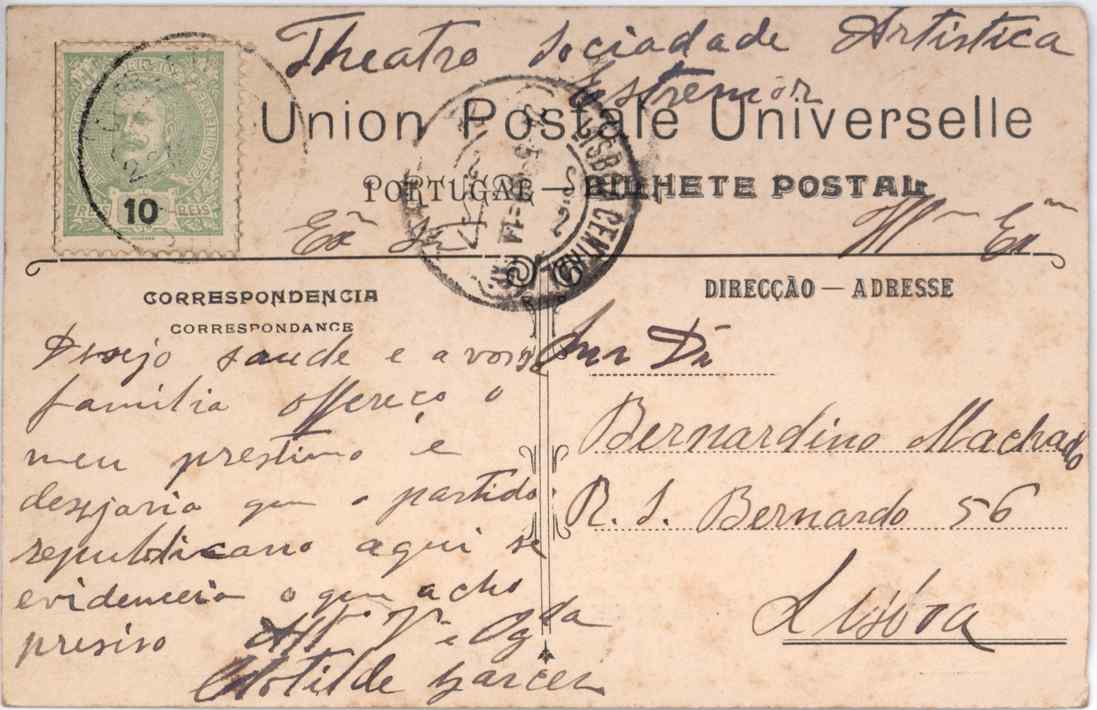 Theatro Sociadade Artistica
Estremoz
Union Postale Universelle
PORTUGAL — BILHETE POSTAL
10 REIS
LISBOA CENTRAL
Exᵐ Sr
Illᵐ Exᵐ
CORRESPONDENCIA
CORRESPONDANCE
DIRECÇÃO — ADRESSE
Desejo saude e a vossa
familia offereço o
meu prestimo e
desejaria que o partido
republicano aqui se
evidenceia o que acho
presiso
Attᵃ Vᵃ e Obgda
Clotilde Garcez
Snr Dr
Bernardino Machado
R. S. Bernardo 56
Lisbôa